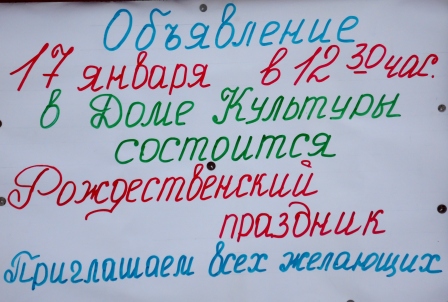 Объявление
17 января в 12 30 час.
в Доме Культуры
состоится
Рождественский
праздник
Приглашаем всех желающих